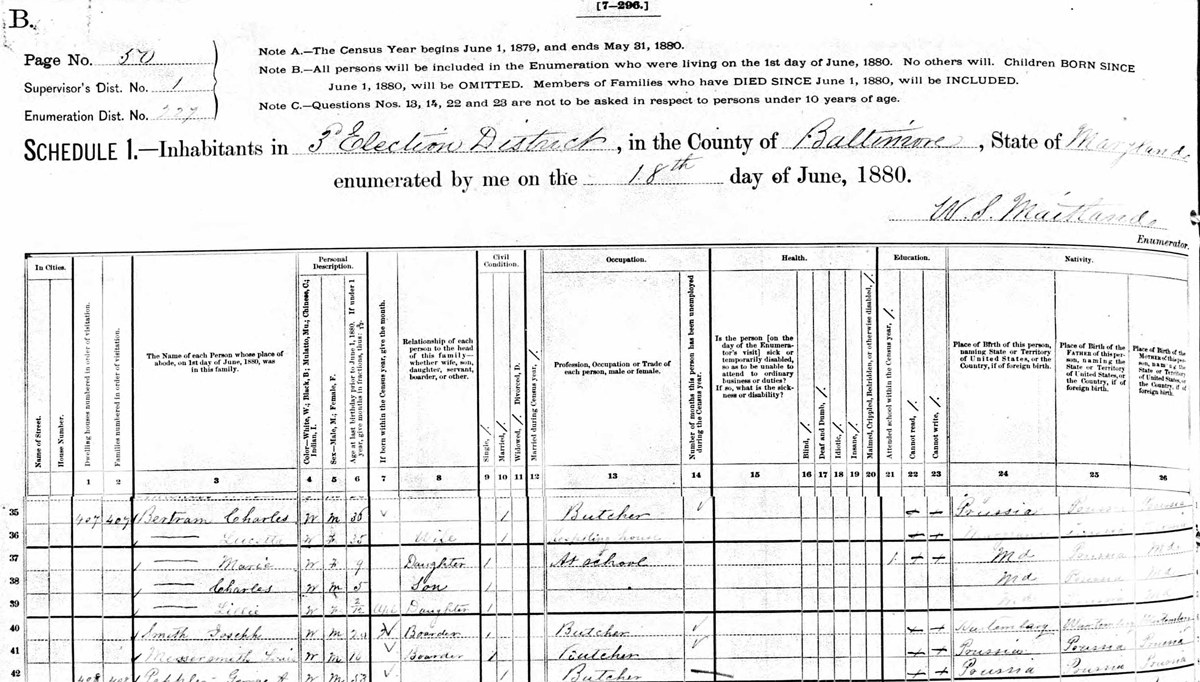 [7-296.]
B.
Page No. 50
Supervisor's Dist. No. 1
Enumeration Dist. No. 227
Note A.—The Census Year begins June 1, 1879, and ends May 31, 1880.
Note B.—All persons will be included in the Enumeration who were living on the 1st day of June, 1880. No others will. Children BORN SINCE
June 1, 1880, will be OMITTED. Members of Families who have DIED SINCE June 1, 1880, will be INCLUDED.
Note C.—Questions Nos. 13, 14, 22 and 23 are not to be asked in respect to persons under 10 years of age.
SCHEDULE 1.—Inhabitants in 3d Election District, in the County of Baltimore, State of Maryland
enumerated by me on the 18th day of June, 1880.
W. S. Maitland
Enumerator.
In Cities.
Name of Street.
House Number.
Dwelling houses numbered in order of visitation.
Families numbered in order of visitation.
The Name of each Person whose place of abode, on 1st day of June, 1880, was in this family.
Personal Description.
Color—White, W.; Black, B.; Mulatto, Mu.; Chinese, C.; Indian, I.
Sex—Male, M.; Female, F.
Age at last birthday prior to June 1, 1880. If under 1 year, give months in fractions, thus:
If born within the Census year, give the month.
Relationship of each person to the head of this family—whether wife, son, daughter, servant, boarder, or other.
Civil Condition.
Single, /.
Married, /.
Widowed, /. Divorced, D.
Married during Census year, /.
Occupation.
Profession, Occupation or Trade of each person, male or female.
Number of months this person has been unemployed during the Census year.
Health.
Is the person [on the day of the Enumerator's visit] sick or temporarily disabled, so as to be unable to attend to ordinary business or duties? If so, what is the sickness or disability?
Blind, /.
Deaf and Dumb, /.
Idiotic, /.
Insane, /.
Maimed, Crippled, Bedridden, or otherwise disabled, /.
Education.
Attended school within the Census year, /.
Cannot read, /.
Cannot write, /.
Nativity.
Place of Birth of this person, naming State or Territory of United States, or the Country, if of foreign birth.
Place of Birth of the FATHER of this person, naming the State or Territory of United States, or the Country, if of foreign birth.
Place of Birth of the MOTHER of this person, naming the State or Territory of United States, or the Country, if of foreign birth.
1 2 3 4 5 6 7 8 9 10 11 12 13 14 15 16 17 18 19 20 21 22 23 24 25 26
35 407 407 Bertram Charles W M 36 / Butcher Prussia Prussia Prussia
36 — W F 35 Wife / Keeping house
37 — Marie W F 9 Daughter / At School / Md Prussia Md
38 — Charles W M 5 Son / Md Prussia Md
39 — Lillie W F 2/12 Apl Daughter / Md Prussia Md
40 Smith Joseph W M Boarder / Butcher Wurtemberg Wurtemberg
41 Messersmith W M Boarder / Butcher Prussia Prussia Prussia
42 408 408 George A W M 53 / Butcher Prussia Prussia Prussia